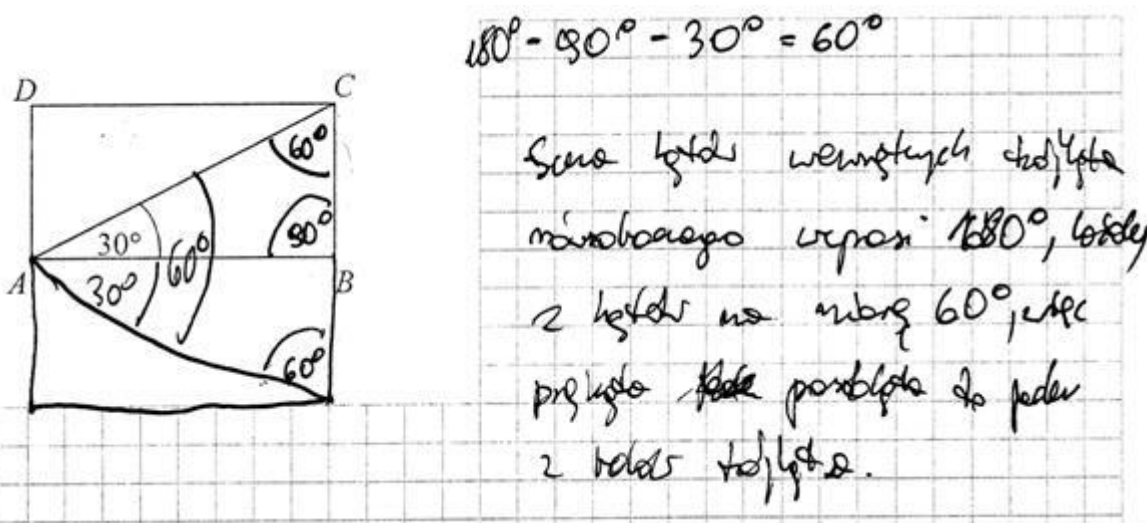 180° - 90° - 30° = 60°
D C
60°
30° 60° 90°
A 30° B
60°
Suma kątów wewnętrznych trójkąta
równobocznego wynosi 180°, każdy
z kątów ma miarę 60°, więc
prostokąta to jeden
z boków trójkąta.